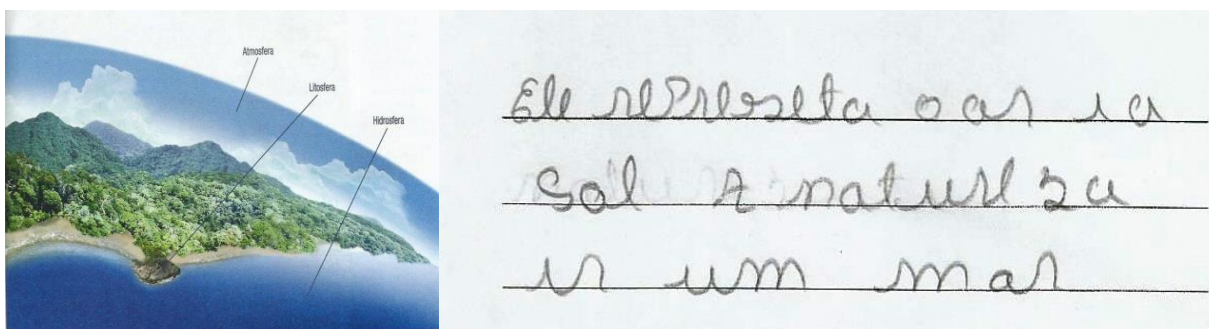 Atmosfera
Litosfera
Hidrosfera
Ele represeta o ar i a
sol e natureza
ir um mar